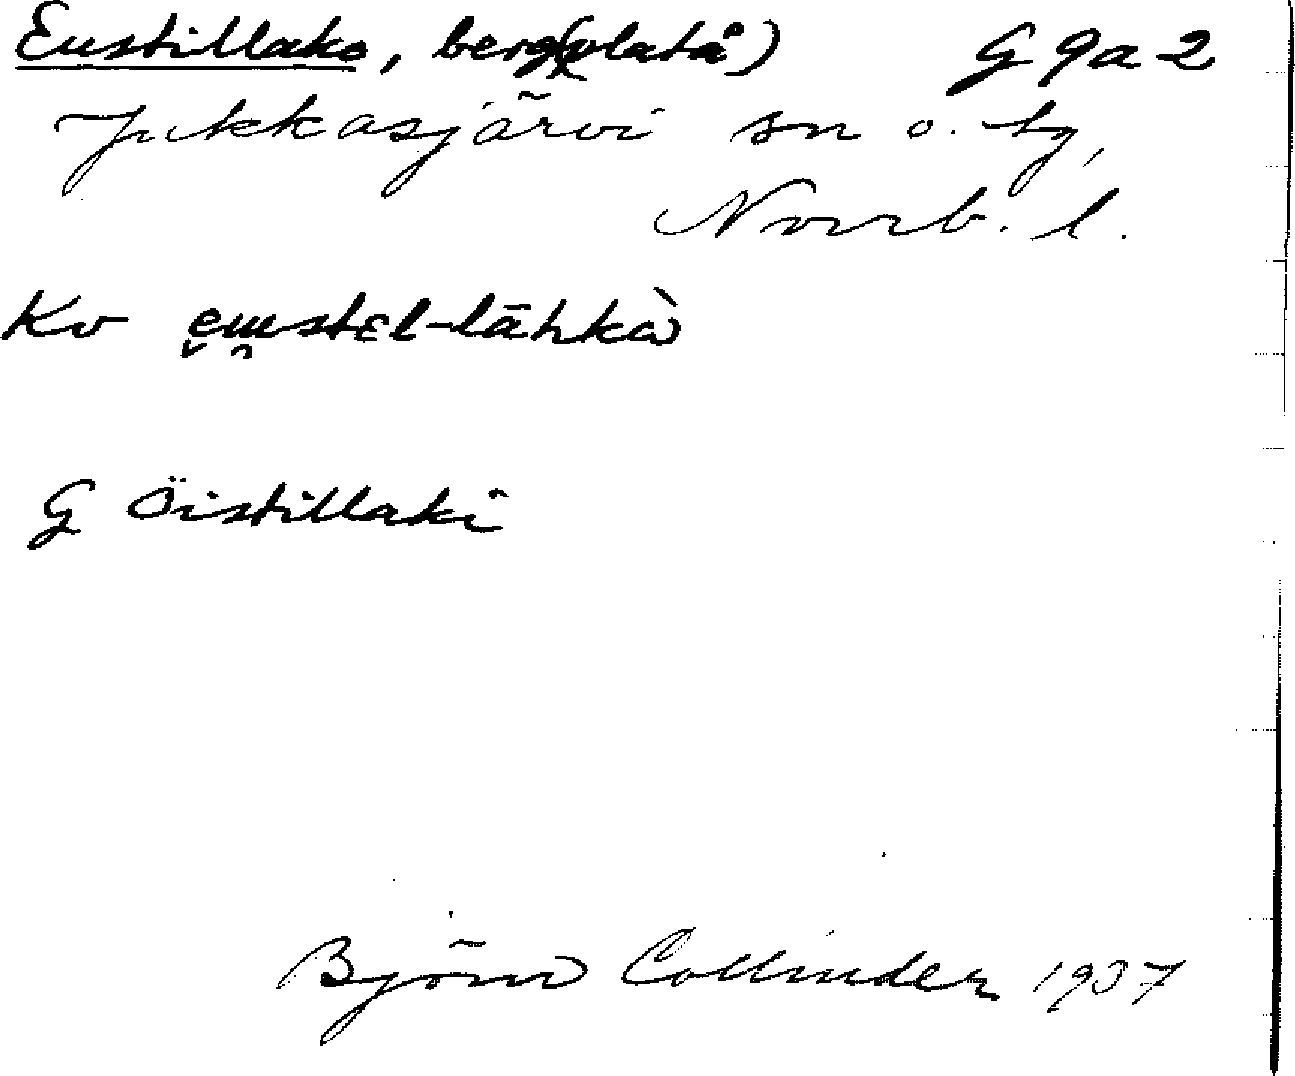 Eustillako, berg(platå) G 9a 2
Jukkasjärvi sn o. tg,
Norrb. l.
Kv e̬u̯stɛl-lāhkà
G Öistillaki
Björn Collinder 1937